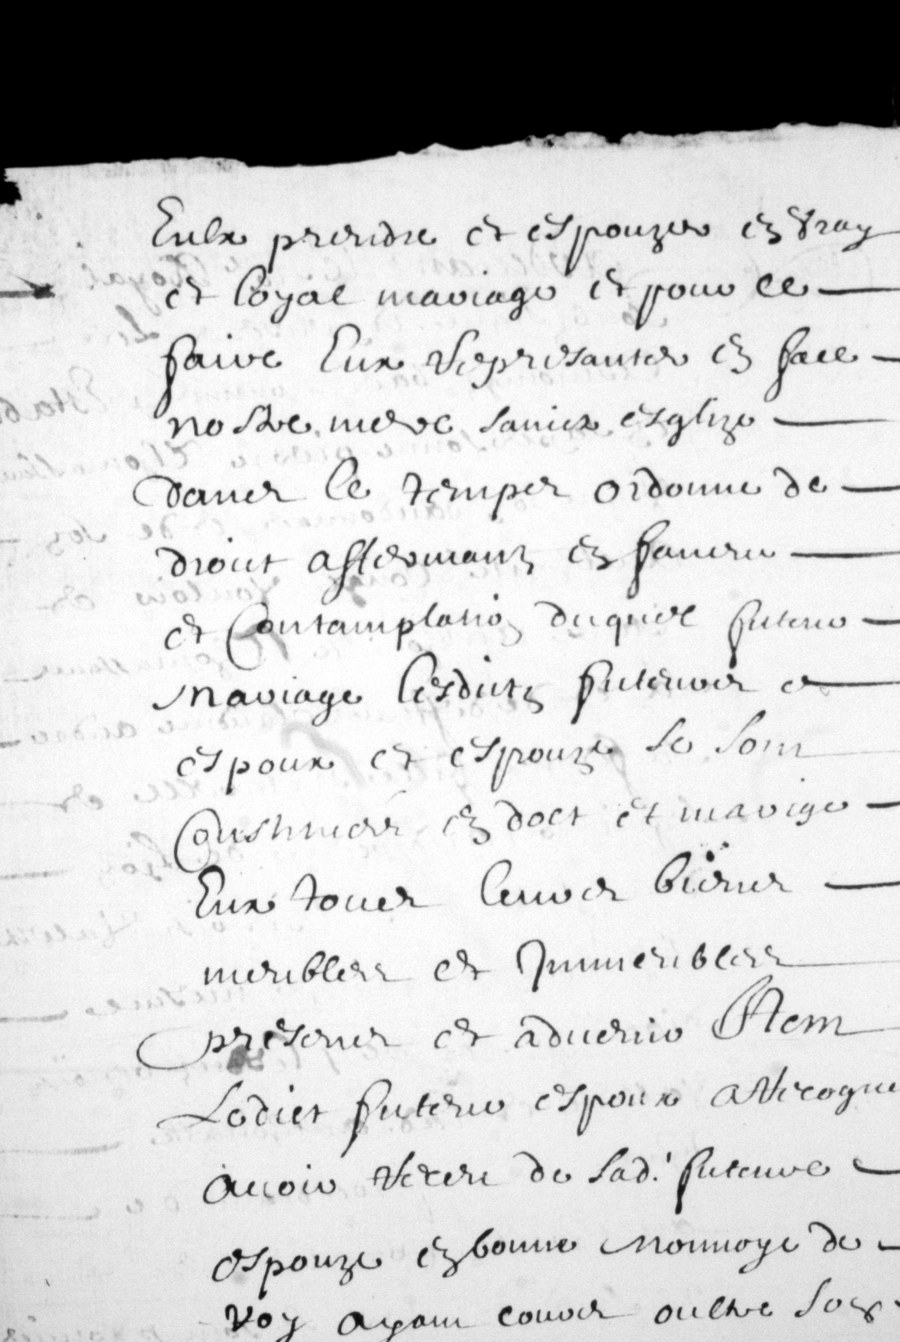 Eulx prendre et espouzer en vray
et loyal mariage et pour ce
faire Eux representer en face
nostre mere saincte esglize
dans le temps ordonne de
droict affermant en faveur
et Contamplation duquel futeur
Mariage lesdictz futeurs
espoux et espouze se sont
Constitues en doct et mariage
Eux tous leurs biens
meubles et Immeubles
presens et advenir Item
Ledict futeur espoux a recogneu
avoir receu de lad. futeure
espouze en bonne monnoye de
roy ayant cours oultre